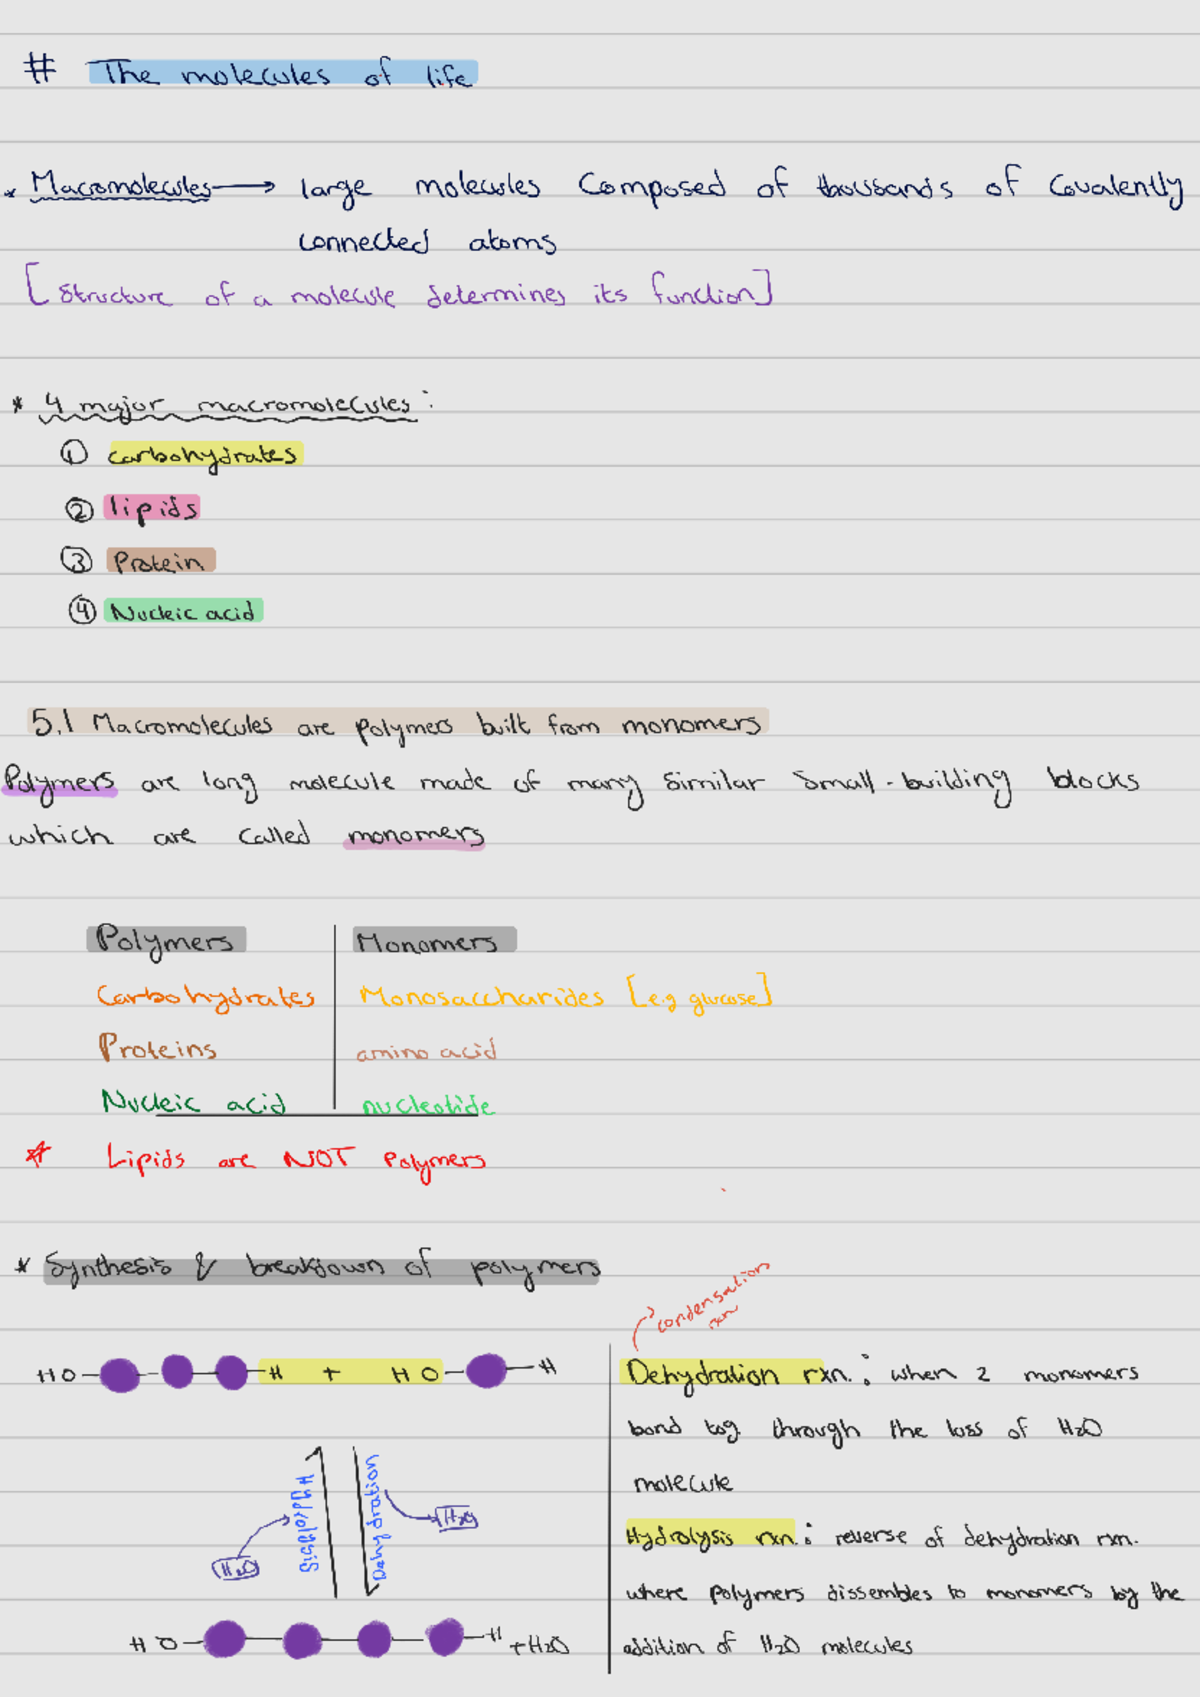 # The molecules of life
* Macromolecules → large molecules Composed of thousands of Covalently
connected atoms
[Structure of a molecule determines its function]
* 4 major macromolecules:
① carbohydrates
② lipids
③ Protein
④ Nucleic acid
5.1 Macromolecules are polymers built from monomers
Polymers are long molecule made of many similar small-building blocks
which are called monomers
Polymers | Monomers
Carbohydrates | Monosaccharides [e.g glucose]
Proteins | amino acid
Nucleic acid | nucleotide
* Lipids are NOT Polymers
* Synthesis & breakdown of polymers
→ condensation
rxn
HO H + HO H
Hydrolysis
Dehydration
H2O
H2O
HO H + H2O
Dehydration rxn.: when 2 monomers
bond tog. through the loss of H2O
molecule
Hydrolysis rxn.: reverse of dehydration rxn.
where polymers dissembles to monomers by the
addition of H2O molecules